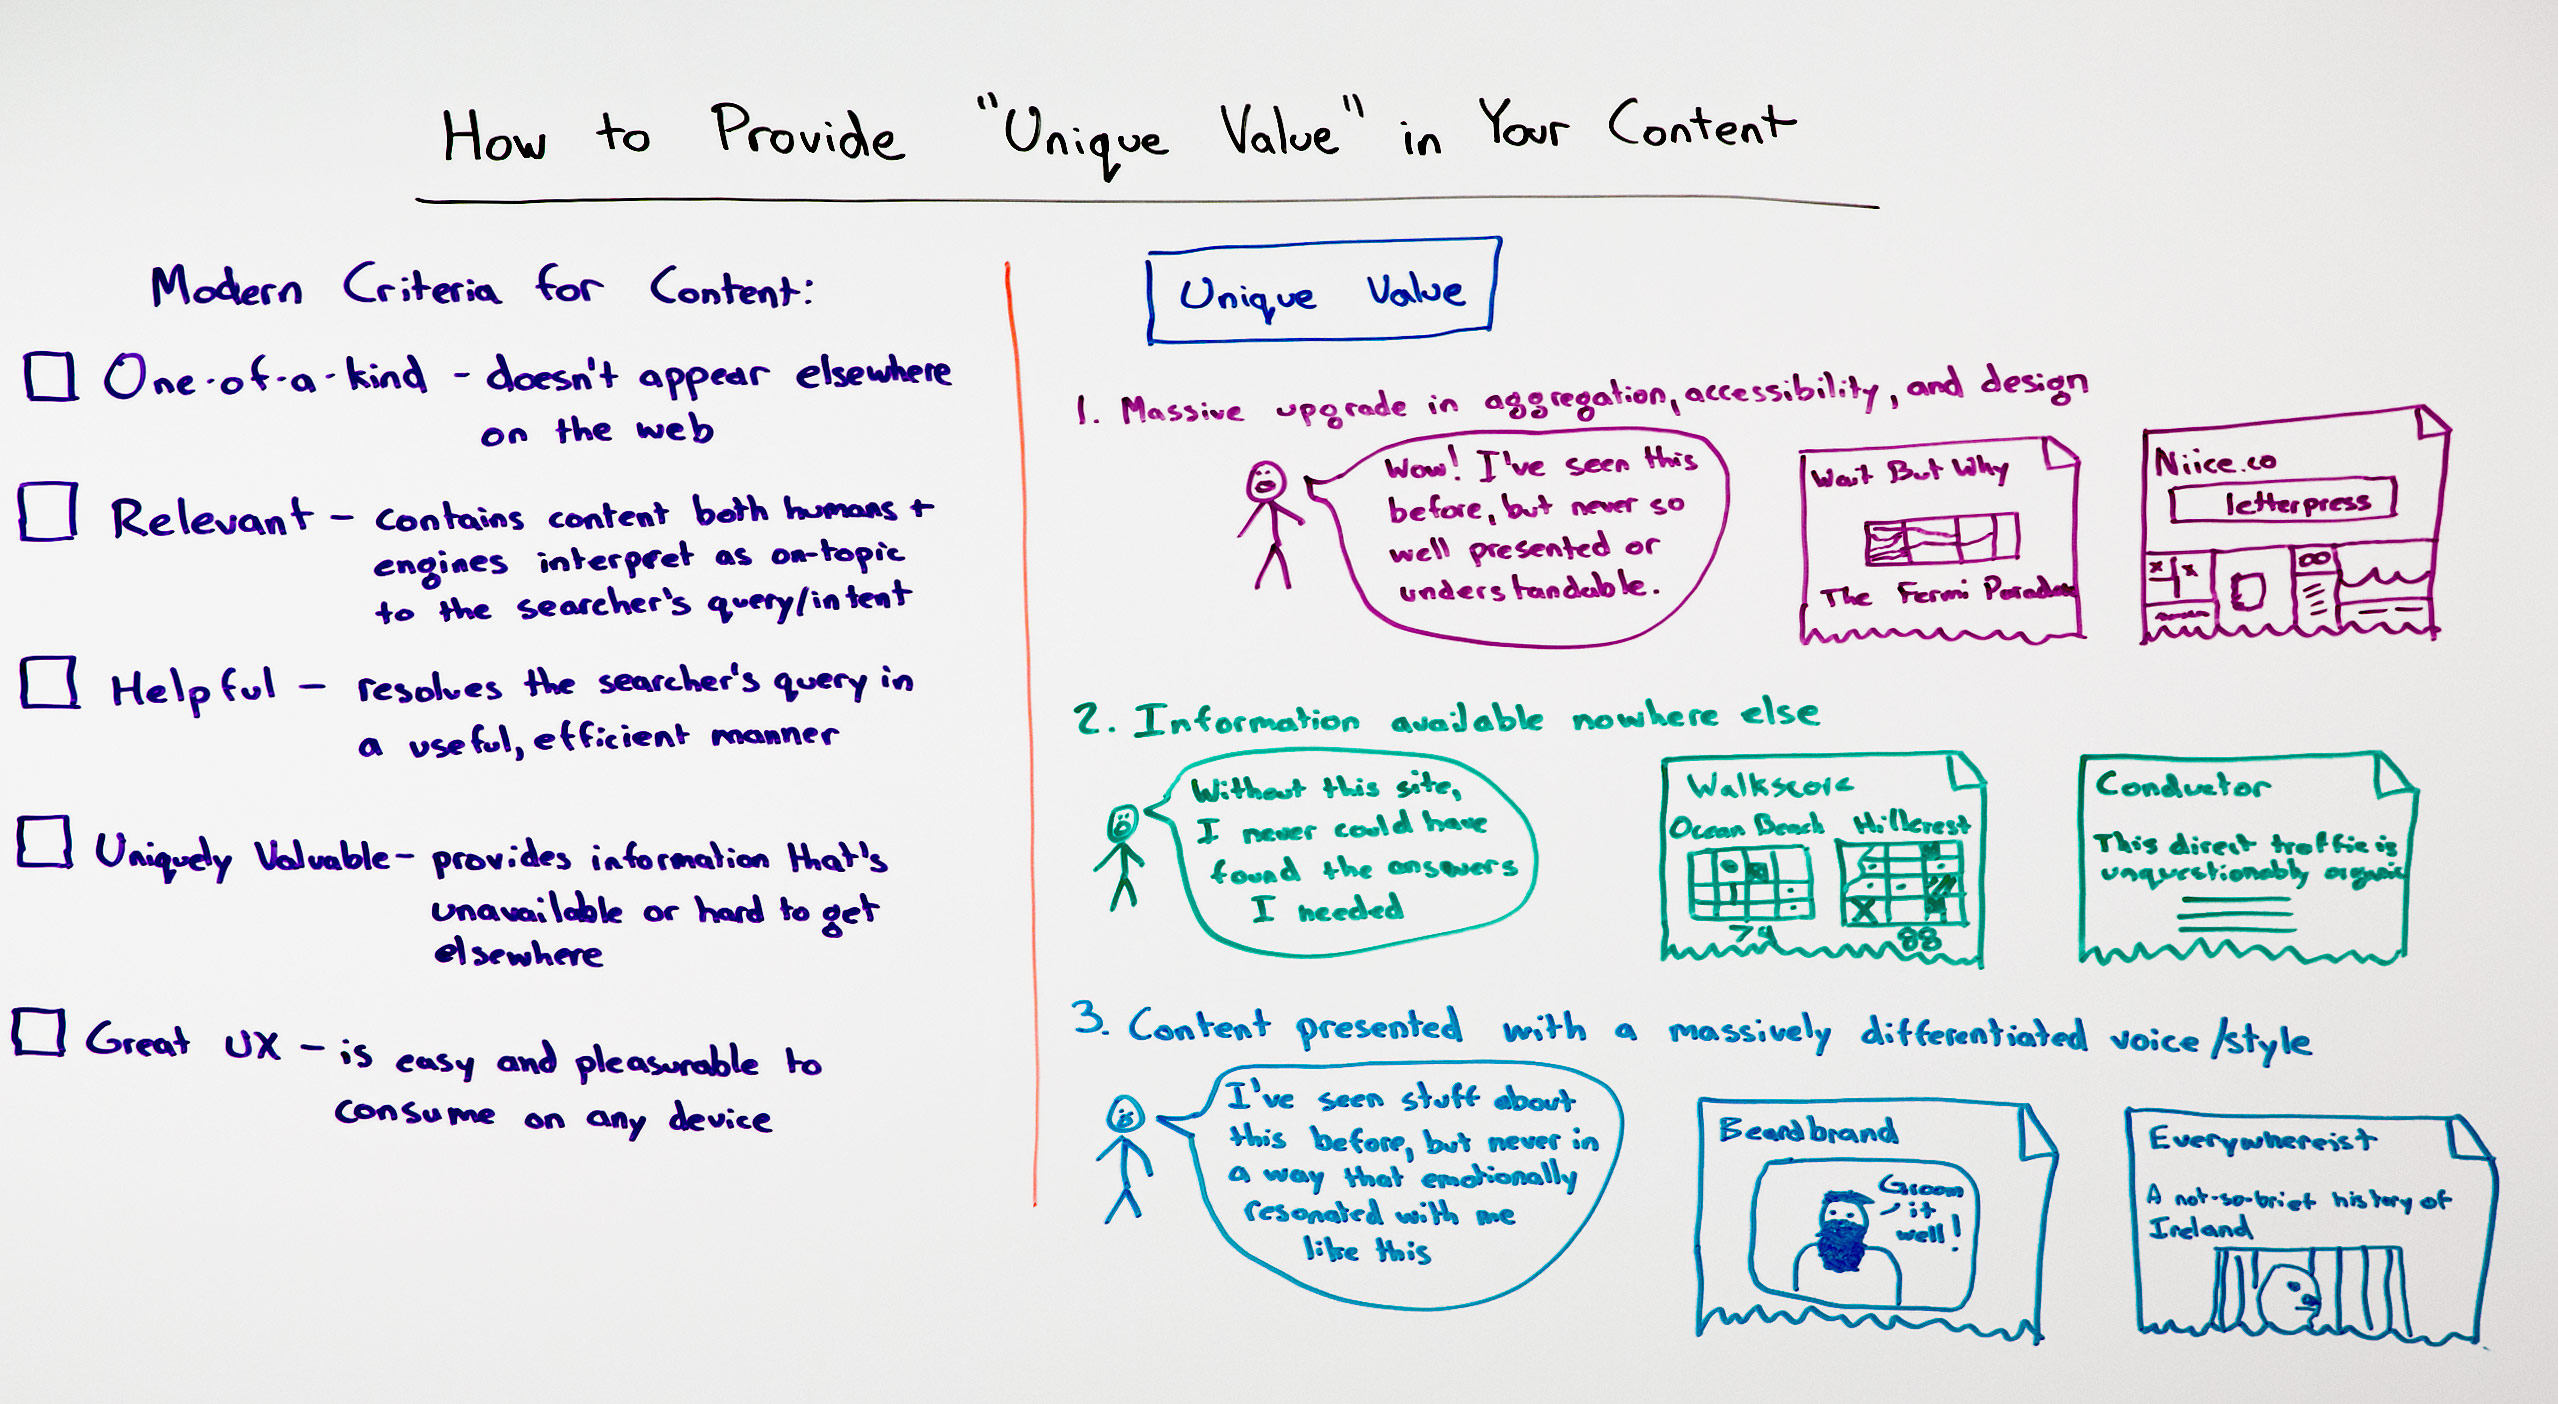 How to Provide "Unique Value" in Your Content
Modern Criteria for Content:
One-of-a-kind - doesn't appear elsewhere
on the web
Relevant - contains content both humans +
engines interpret as on-topic
to the searcher's query/intent
Helpful - resolves the searcher's query in
a useful, efficient manner
Uniquely Valuable - provides information that's
unavailable or hard to get
elsewhere
Great UX - is easy and pleasurable to
consume on any device
Unique Value
1. Massive upgrade in aggregation, accessibility, and design
Wow! I've seen this
before, but never so
well presented or
understandable.
Wait But Why
The Fermi Paradox
Niice.co
letterpress
2. Information available nowhere else
Without this site,
I never could have
found the answers
I needed
Walkscore
Ocean Beach Hillcrest
88
Conductor
This direct traffic is
unquestionably organic
3. Content presented with a massively differentiated voice/style
I've seen stuff about
this before, but never in
a way that emotionally
resonated with me
like this
Beardbrand
Groom
it
well!
Everywhereist
A not-so-brief history of
Ireland